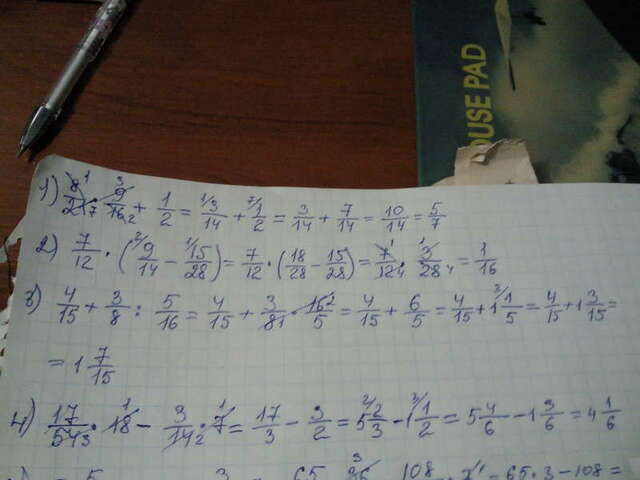 OUSE PAD
1) 8/21 · 9/16 + 1/2 = 3/14 + 1/2 = 3/14 + 7/14 = 10/14 = 5/7
2) 7/12 · (9/14 - 15/28) = 7/12 · (18/28 - 15/28) = 7/12 · 3/28 = 1/16
3) 4/15 + 3/8 : 5/16 = 4/15 + 3/8 · 16/5 = 4/15 + 6/5 = 4/15 + 1 1/5 = 4/15 + 1 3/15 =
= 1 7/15
4) 17/54 · 18 - 3/14 · 7 = 17/3 - 3/2 = 5 2/3 - 1 1/2 = 5 4/6 - 1 3/6 = 4 1/6
65 · 3 - 108 =